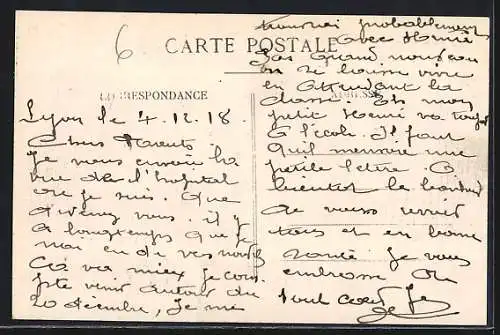 6
CARTE POSTALE
CORRESPONDANCE
ADRESSE
Lyon le 4.12.18.
Chers Parents
Je vous envoie la
vue de l'hôpital
ou je suis. Que
devenez vous. il y
a longtemps que je
n'ai eu de vos nouvelles
Ca va mieux je compte
venir autour du
20 décembre, je me
trouverai probablement
avec
Gas quand nous
on se laisse vivre
en attendant la
classe. Et mon
petit va toujours
a l'école. Il faut
qu'il m'envoie une
petite lettre. A
bientot le bonheur
de vous revoir
tous et en bonne
santé. Je vous
embrasse de
tout coeur